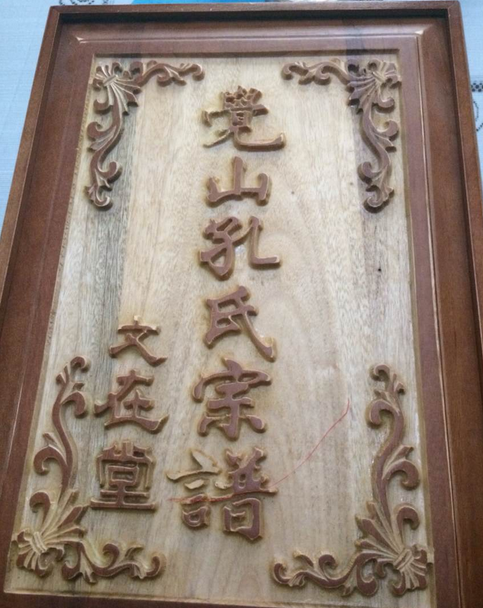 覺山孔氏宗譜
文在堂